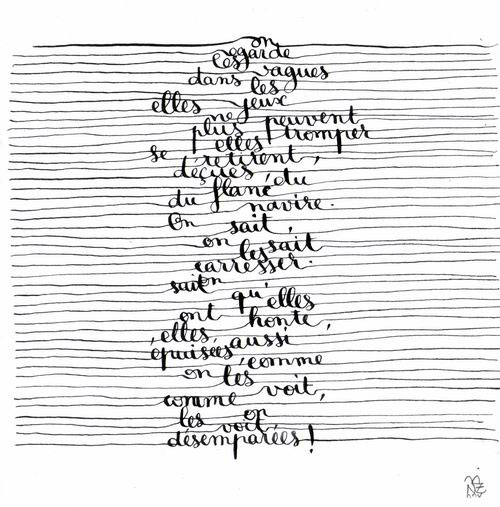 on
regarde
les
dans vagues
les
elles yeux
ne
plus peuvent
elles tromper
se retirent,
déçues, du
du flanc
navire.
On sait,
on les sait
carresser.
sait on
qu'elles
ont honte,
, elles,
épuisées aussi
, comme
on les voit,
comme
les on
voit
désemparées !